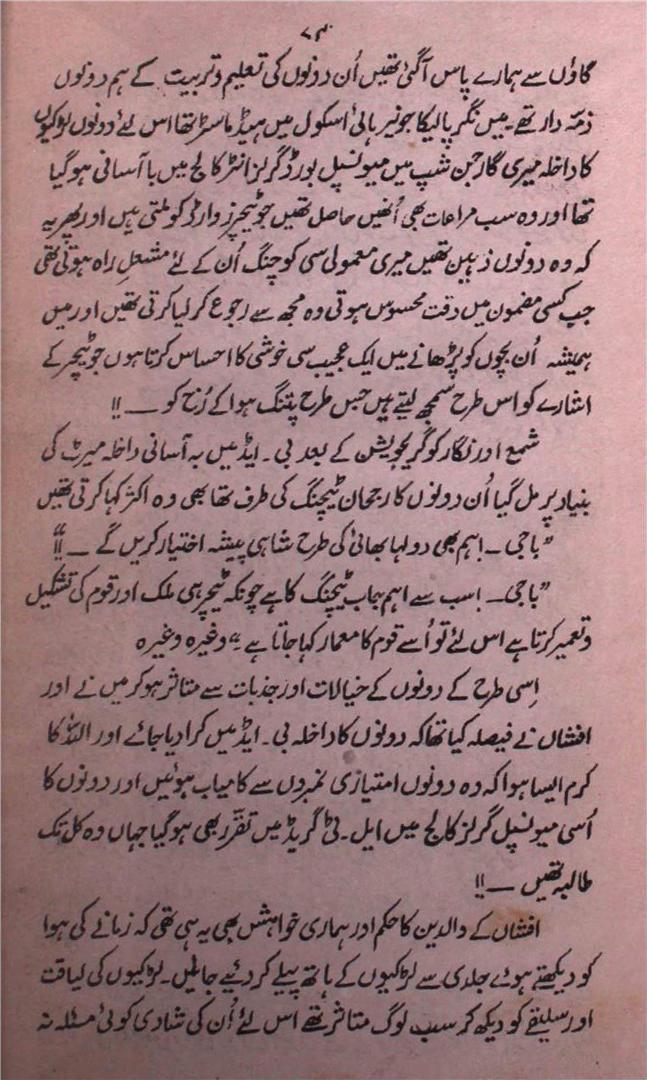 ۷۳
گاؤں سے ہمارے پاس آگئی تھیں اُن دونوں کی تعلیم و تربیت کے ہم دونوں
ذمّہ دار تھے۔ میں نگر پالیکا جونیر ہائی اسکول میں ہیڈ ماسٹر تھا اس لئے دونوں لڑکیوں
کا داخلہ میری گارجن شپ میں میونسپل بورڈ گرلز انٹر کالج میں با آسانی ہو گیا
تھا اور وہ سب مراعات بھی اُنھیں حاصل تھیں جو ٹیچرز وارڈ کو ملتی ہیں اور پھر یہ
کہ وہ دونوں ذہین تھیں میری معمولی سی کوچنگ اُن کے لئے مشعلِ راہ ہوتی تھی
جب کسی مضمون میں دقت محسوس ہوتی وہ مجھ سے رجوع کر لیا کرتی تھیں اور میں
ہمیشہ اُن بچوں کو پڑھانے میں ایک عجیب سی خوشی کا احساس کرتا ہوں جو ٹیچر کے
اشارے کو اس طرح سمجھ لیتے ہیں جس طرح پتنگ ہوا کے رُخ کو ــ !!
شمع اور نگار کو گریجویشن کے بعد بی۔ ایڈ میں بہ آسانی داخلہ میرٹ کی
بنیاد پر مل گیا اُن دونوں کا رجحان ٹیچنگ کی طرف تھا بھی وہ اکثر کہا کرتی تھیں
”باجی ــ! ہم بھی دولہا بھائی کی طرح شاہی پیشہ اختیار کریں گے ــ !!“
”باجی ــ! سب سے اہم جاب ٹیچنگ کا ہے چونکہ ٹیچر ہی ملک اور قوم کی تشکیل
و تعمیر کرتا ہے اس لئے تو اُسے قوم کا معمار کہا جاتا ہے“ وغیرہ وغیرہ
اِسی طرح کے دونوں کے خیالات اور جذبات سے متاثر ہو کر میں نے اور
افشاں نے فیصلہ کیا تھا کہ دونوں کا داخلہ بی۔ ایڈ میں کرا دیا جائے اور اللہ کا
کرم ایسا ہوا کہ وہ دونوں امتیازی نمبروں سے کامیاب ہوئیں اور دونوں کا
اُسی میونسپل گرلز کالج میں ایل۔ ٹی گریڈ میں تقرر بھی ہو گیا جہاں وہ کل تک
طالبہ تھیں ــ !!
افشاں کے والدین کا حکم اور ہماری خواہش بھی یہ ہی تھی کہ زمانے کی ہوا
کو دیکھتے ہوئے جلدی سے لڑکیوں کے ہاتھ پیلے کر دیئے جائیں۔ لڑکیوں کی لیاقت
اور سلیقے کو دیکھ کر سب لوگ متاثر تھے اس لئے اُن کی شادی کوئی مسئلہ نہ